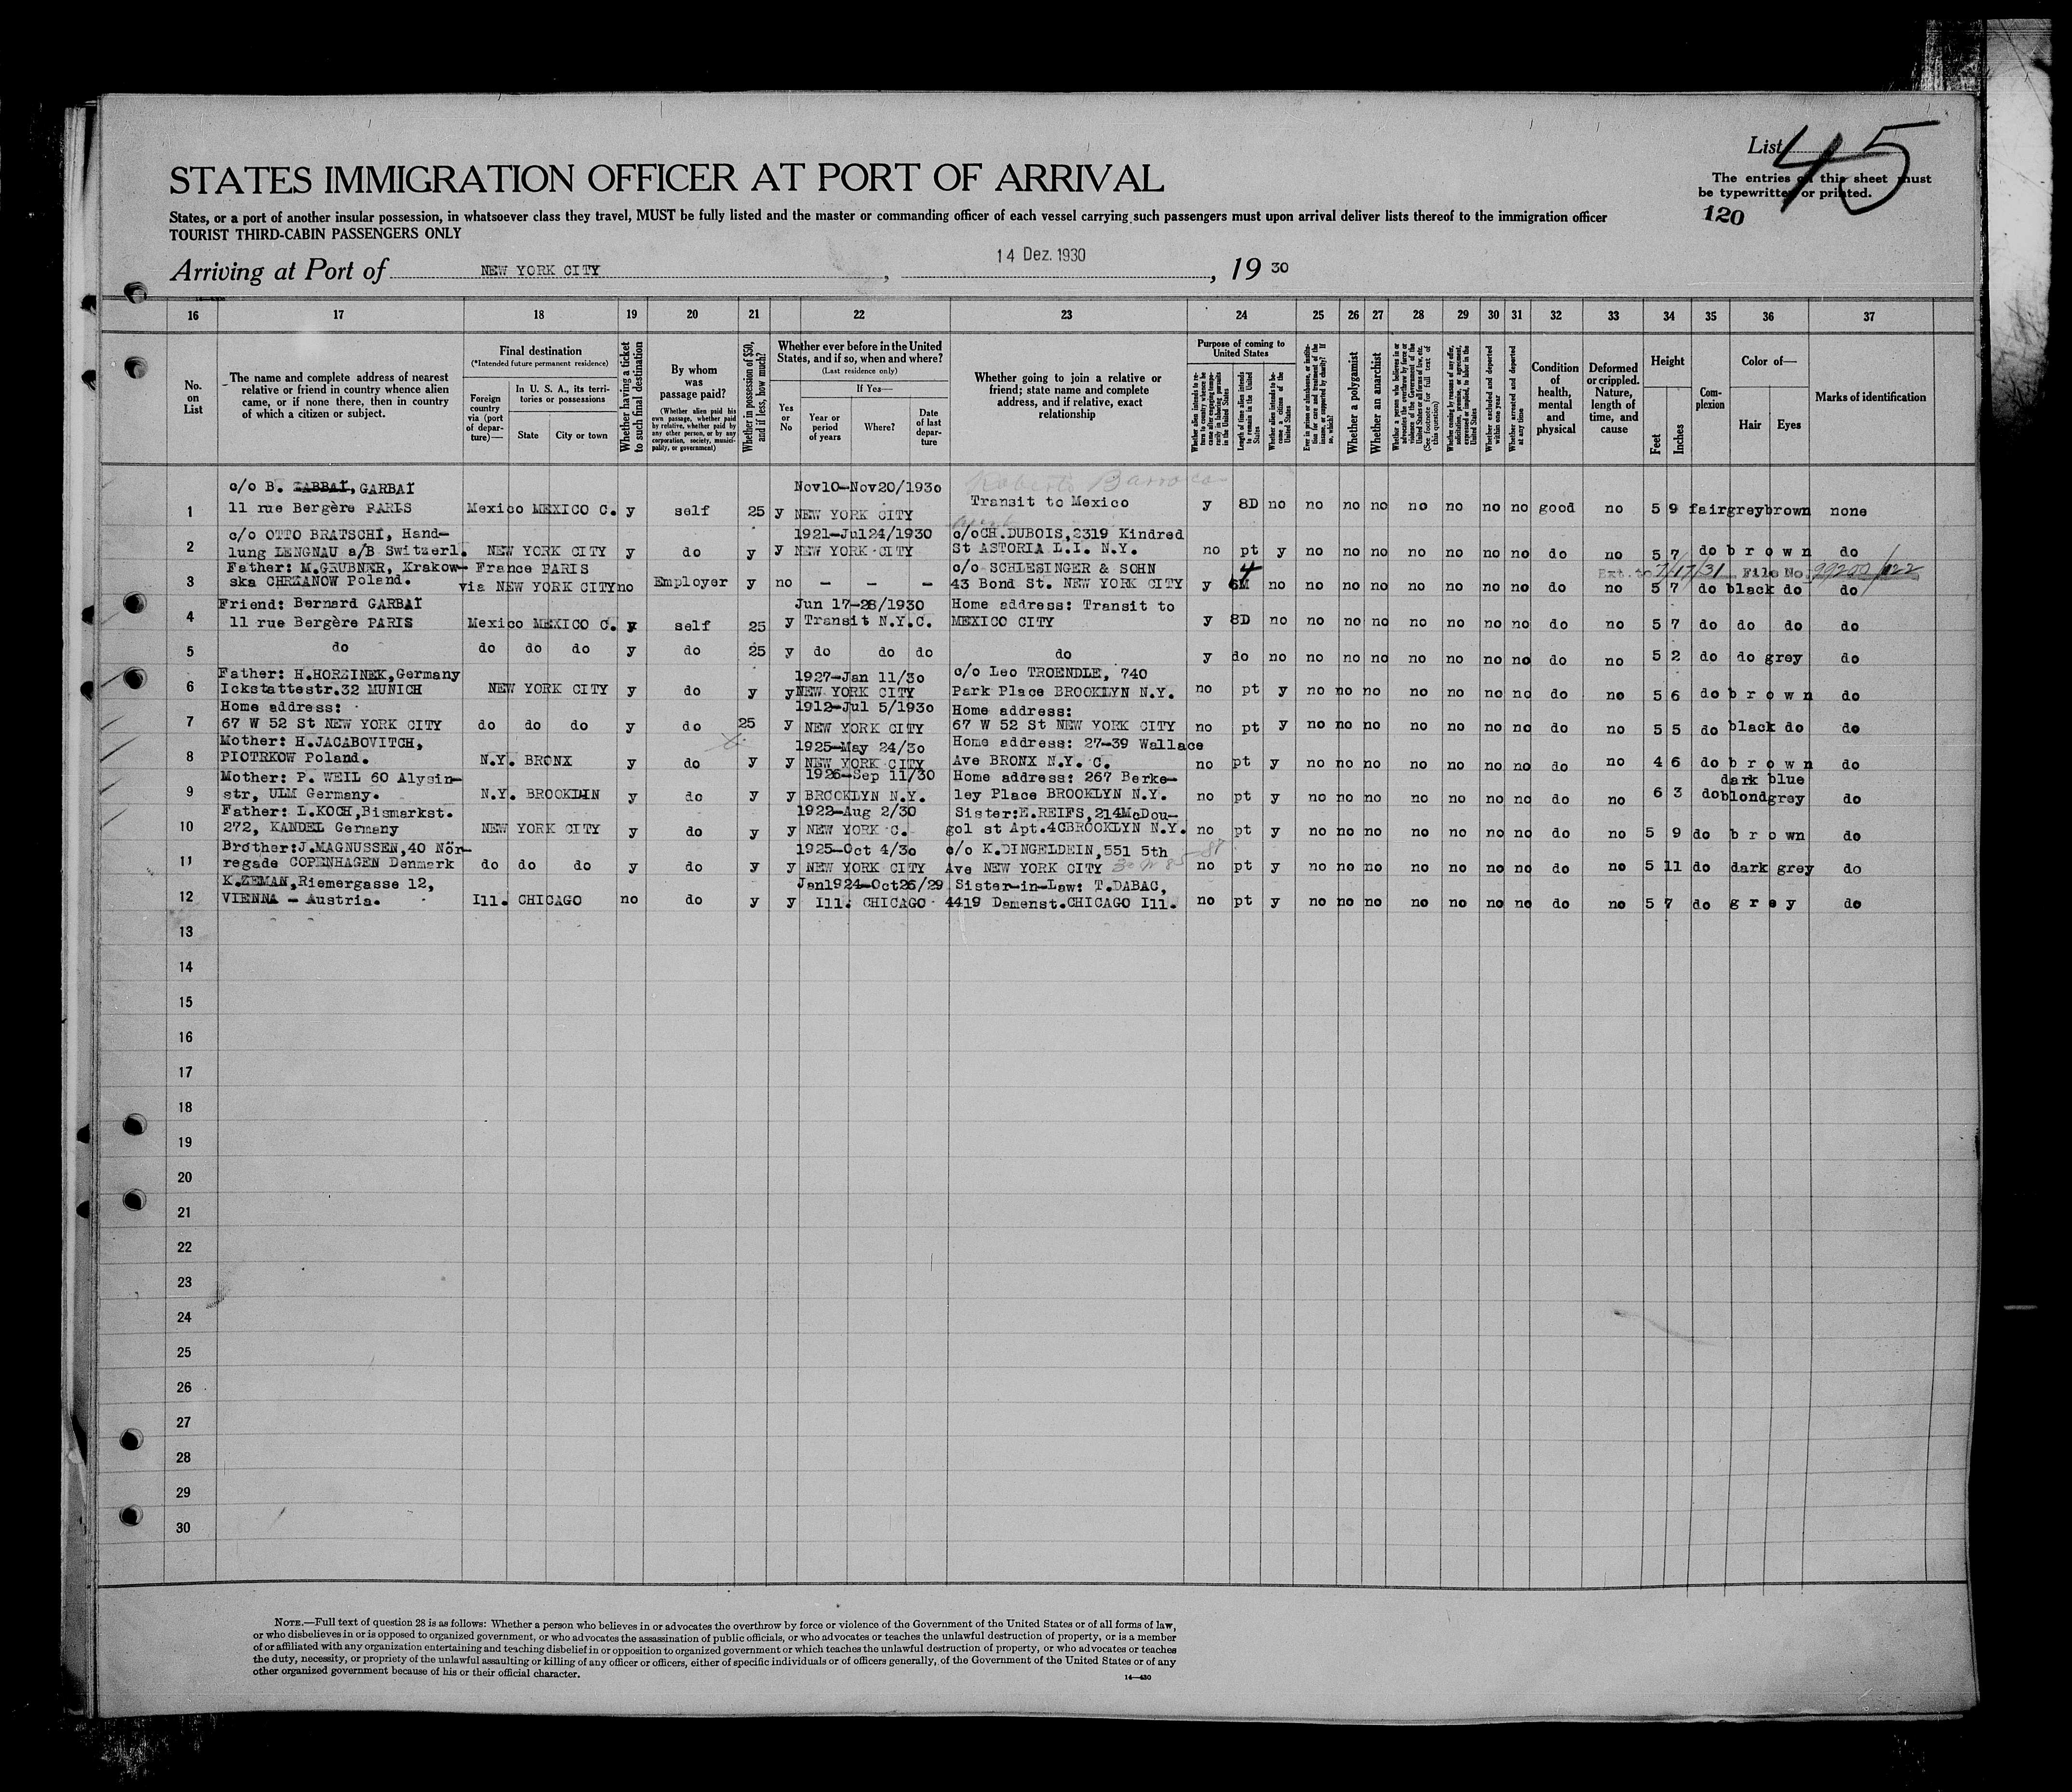 List 45
The entries on this sheet must
be typewritten or printed.
120
STATES IMMIGRATION OFFICER AT PORT OF ARRIVAL
States, or a port of another insular possession, in whatsoever class they travel, MUST be fully listed and the master or commanding officer of each vessel carrying such passengers must upon arrival deliver lists thereof to the immigration officer
TOURIST THIRD-CABIN PASSENGERS ONLY
Arriving at Port of NEW YORK CITY, 14 Dez. 1930, 19 30
16 17 18 19 20 21 22 23 24 25 26 27 28 29 30 31 32 33 34 35 36 37
No. on List
The name and complete address of nearest relative or friend in country whence alien came, or if none there, then in country of which a citizen or subject.
Final destination
(*Intended future permanent residence)
Foreign country via (port of departure)—
In U. S. A., its territories or possessions
State
City or town
Whether having a ticket to such final destination
By whom was passage paid?
(Whether alien paid his own passage, whether paid by relative, whether paid by any other person, or by any corporation, society, municipality, or government)
Whether in possession of $50, and if less, how much?
Whether ever before in the United States, and if so, when and where?
(Last residence only)
Yes or No
If Yes—
Year or period of years
Where?
Date of last departure
Whether going to join a relative or friend; state name and complete address, and if relative, exact relationship
Purpose of coming to United States
Whether alien intends to return to country whence he came after engaging temporarily in laboring pursuits in the United States
Length of time alien intends to remain in the United States
Whether alien intends to become a citizen of the United States
Ever in prison or almshouse, or institution for care and treatment of the insane, or supported by charity? If so, which?
Whether a polygamist
Whether an anarchist
Whether a person who believes in or advocates the overthrow by force or violence of the Government of the United States or all forms of law, etc. (See footnote for full text of this question)
Whether coming by reason of any offer, solicitation, promise, or agreement, expressed or implied, to labor in the United States
Whether excluded and deported within one year
Whether arrested and deported at any time
Condition of health, mental and physical
Deformed or crippled. Nature, length of time, and cause
Height
Feet
Inches
Complexion
Color of—
Hair
Eyes
Marks of identification
c/o B. ZABBAI, GARBAÏ Nov10-Nov20/1930 Roberto Barroco
1 11 rue Bergère PARIS Mexico MEXICO C. y self 25 y NEW YORK CITY Transit to Mexico y 8D no no no no no no no no good no 5 9 fair grey brown none
c/o OTTO BRATSCHI, Hand- 1921-Jul24/1930 c/oCH.DUBOIS,2319 Kindred
2 lung LENGNAU a/B Switzerl. NEW YORK CITY y do y y NEW YORK CITY St ASTORIA L.I. N.Y. no pt y no no no no no no no do no 5 7 do brown do
Father: M.GRUBNER, Krakow- France PARIS c/o SCHLESINGER & SOHN 4 Ext. to 7/17/31 File No. 99200/122
3 ska CHRZANOW Poland. via NEW YORK CITY no Employer y no - - - 43 Bond St. NEW YORK CITY y 6M no no no no no no no no do no 5 7 do black do do
Friend: Bernard GARBAÏ Jun 17-28/1930 Home address: Transit to
4 11 rue Bergère PARIS Mexico MEXICO C. y self 25 y Transit N.Y.C. MEXICO CITY y 8D no no no no no no no no do no 5 7 do do do do
5 do do do do y do 25 y do do do do y do no no no no no no no no do no 5 2 do do grey do
Father: H.HORZINEK,Germany 1927-Jan 11/30 c/o Leo TROENDLE, 740
6 Ickstattestr.32 MUNICH NEW YORK CITY y do y y NEW YORK CITY Park Place BROOKLYN N.Y. no pt y no no no no no no no do no 5 6 do brown do
Home address: 1912-Jul 5/1930 Home address:
7 67 W 52 St NEW YORK CITY do do do y do 25 y NEW YORK CITY 67 W 52 St NEW YORK CITY no pt y no no no no no no no do no 5 5 do black do do
Mother: H.JACABOVITCH, 1925-May 24/30 Home address: 27-39 Wallace
8 PIOTRKOW Poland. N.Y. BRONX y do y y NEW YORK CITY Ave BRONX N.Y. C. no pt y no no no no no no no do no 4 6 do brown do
Mother: P. WEIL 60 Alysin- 1926-Sep 11/30 Home address: 267 Berke- dark blue
9 str, ULM Germany. N.Y. BROOKLIN y do y y BROOKLYN N.Y. ley Place BROOKLYN N.Y. no pt y no no no no no no no do no 6 3 do blond grey do
Father: L.KOCH,Bismarkst. 1922-Aug 2/30 Sister:E.REIFS,214McDou-
10 272, KANDEL Germany NEW YORK CITY y do y y NEW YORK C. gol st Apt.4CBROOKLYN N.Y. no pt y no no no no no no no do no 5 9 do brown do
Brother:J.MAGNUSSEN,40 Nör- 1925-Oct 4/30 c/o K.DINGELDEIN,551 5th
11 regade COPENHAGEN Denmark do do do y do y y NEW YORK CITY Ave NEW YORK CITY no pt y no no no no no no no do no 5 11 do dark grey do
K.ZEMAN,Riemergasse 12, Jan1924-Oct26/29 Sister-in-Law: T.DABAC,
12 VIENNA - Austria. Ill. CHICAGO no do y y Ill. CHICAGO 4419 Damenst.CHICAGO Ill. no pt y no no no no no no no do no 5 7 do grey do
13
14
15
16
17
18
19
20
21
22
23
24
25
26
27
28
29
30
NOTE.—Full text of question 28 is as follows: Whether a person who believes in or advocates the overthrow by force or violence of the Government of the United States or of all forms of law,
or who disbelieves in or is opposed to organized government, or who advocates the assassination of public officials, or who advocates or teaches the unlawful destruction of property, or is a member
of or affiliated with any organization entertaining and teaching disbelief in or opposition to organized government or which teaches the unlawful destruction of property, or who advocates or teaches
the duty, necessity, or propriety of the unlawful assaulting or killing of any officer or officers, either of specific individuals or of officers generally, of the Government of the United States or of any
other organized government because of his or their official character.
14—430